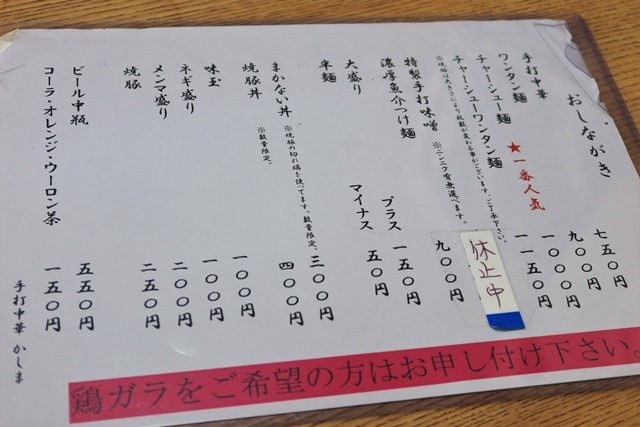 おしながき
手打中華 七五〇円
ワンタン麺 ★一番人気 九〇〇円
チャーシュー麺 一〇〇〇円
チャーシューワンタン麺 一一五〇円
※焼豚は大きさにより枚数が変わる事がございます。ご了承下さい。
特製手打味噌 ※ニンニク有無選べます。 休止中
濃厚魚介つけ麺 九〇〇円
大盛り プラス 一五〇円
半麺 マイナス 五〇円
まかない丼 ※焼豚の切れ端を使ってます。数量限定。 三〇〇円
焼豚丼 ※数量限定。 四〇〇円
味玉 一〇〇円
ネギ盛り 一〇〇円
メンマ盛り 二〇〇円
焼豚 二五〇円
ビール中瓶 五五〇円
コーラ・オレンジ・ウーロン茶 一五〇円
手打中華 かしま
鶏ガラをご希望の方はお申し付け下さい。